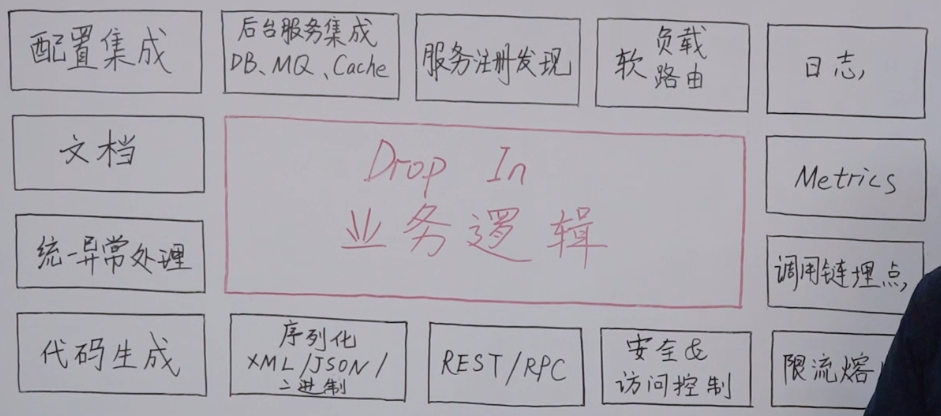 配置集成
后台服务集成
DB、MQ、Cache
服务注册发现
软负载
路由
日志,
文档
Drop In
业务逻辑
Metrics
统一异常处理
调用链埋点,
代码生成
序列化
XML/JSON/
二进制
REST/RPC
安全&
访问控制
限流熔